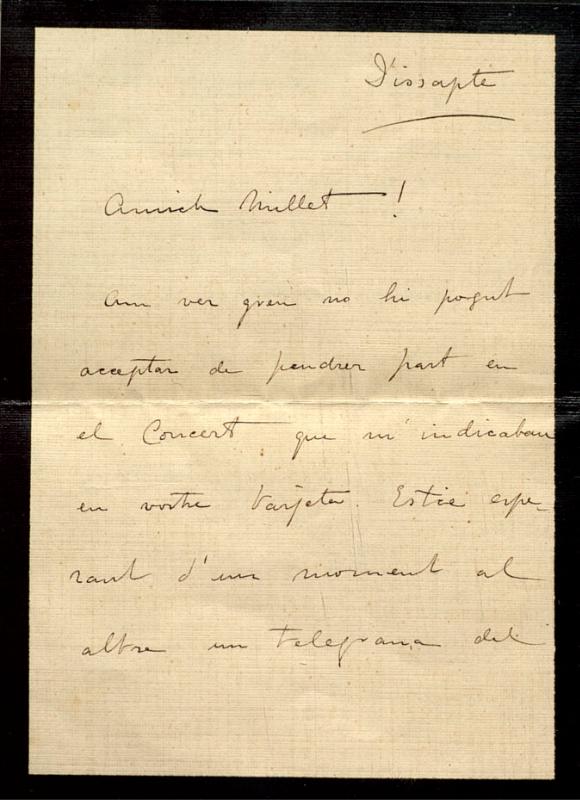 Dissapte
Amich Millet !
Am ver greu no hi pogut
acceptar de pendrer part en
el Concert que m'indicaban
en vostre tarjeta. Estic espe-
rant d'un moment al
altre un telegrama del